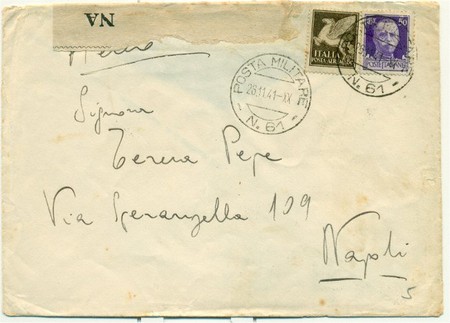 NA
Aerea
ITALIA
POSTA AEREA
50
POSTE ITALIANE
POSTA MILITARE
28.11.41-XX
N. 61
N. 61
Signora
Teresa Pepe
Via Speranzella 109
Napoli
5